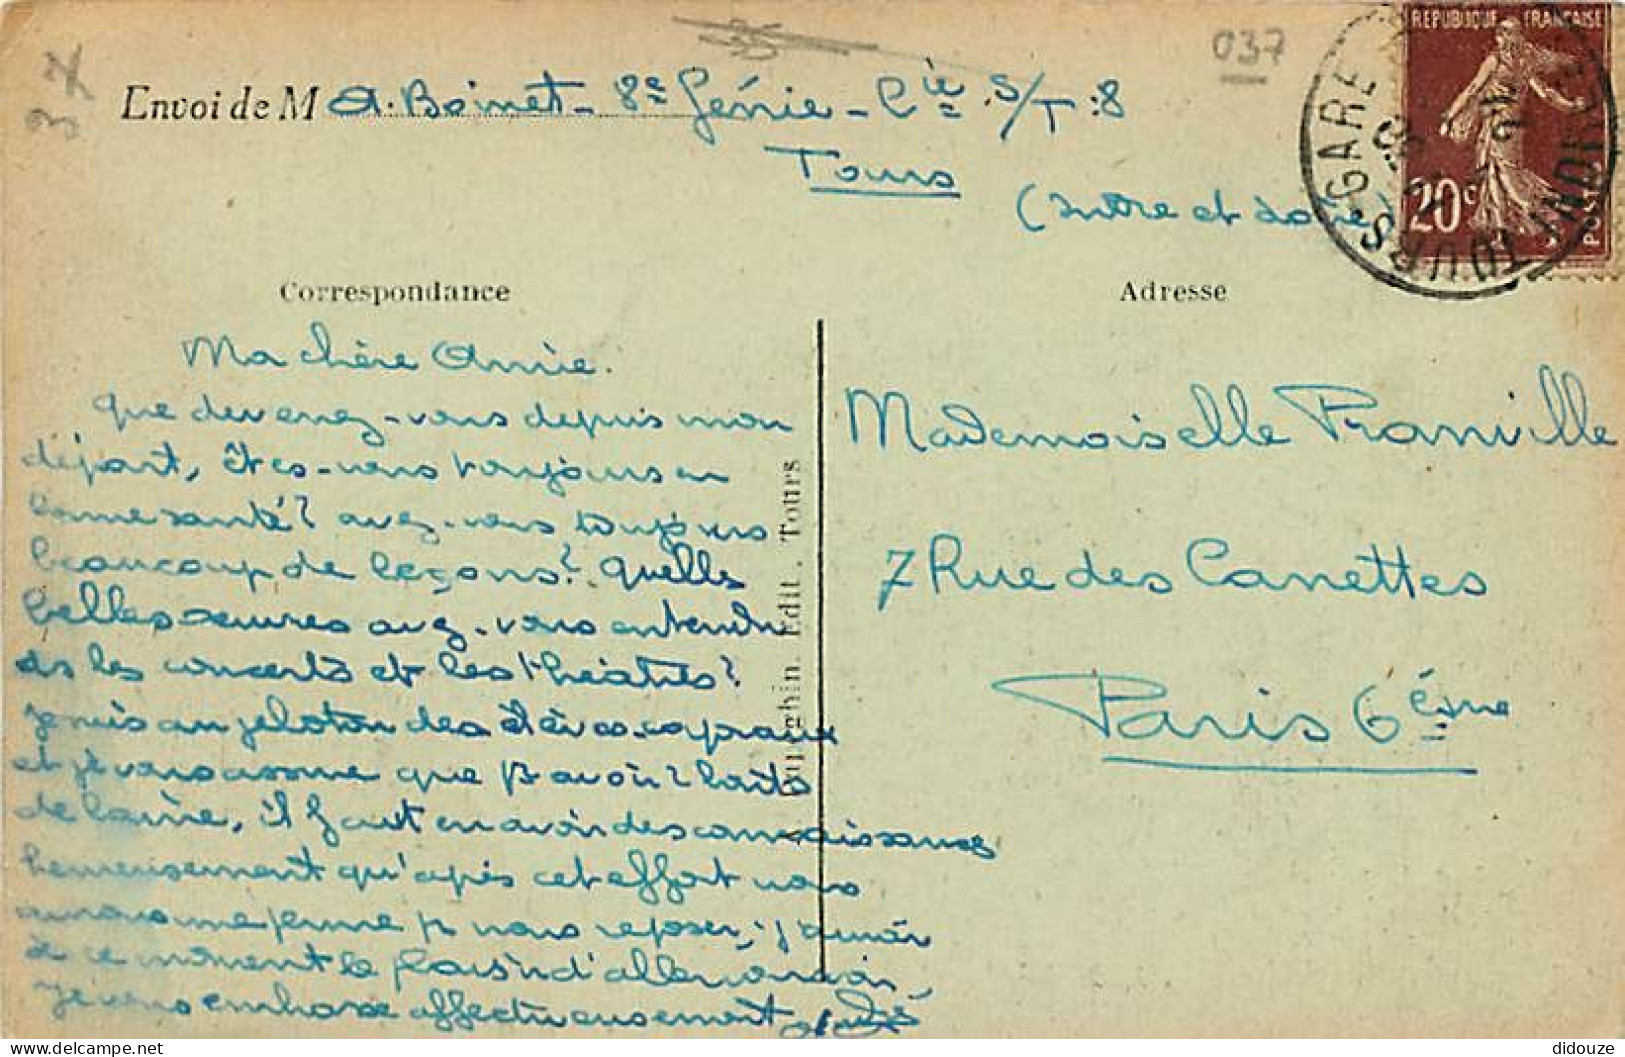 037
37
RÉPUBLIQUE FRANÇAISE
20c
POSTES
TOURS-GARE
INDRE-ET-
Envoi de M A. Boinet - 8e Génie - Cie S/T:8
Tours
(Indre et Loire)
Correspondance
Adresse
Ma chère Annie.
que devenez-vous depuis mon
départ, êtes-vous toujours en
bonne santé? avez-vous toujours
beaucoup de leçons? Quelles
belles oeuvres avez-vous entendu
ds les concerts et les théatres?
je suis au peloton des élèves-caporaux
et je vous assure que pr avoir 2 bouts
de laine, il faut en avoir des connaissances
heureusement qu'après cet effort nous
aurons une perme pr nous reposer, j'aurai
à ce moment le plaisir d'aller vous voir,
Je vous embrasse affectueusement André
Mademoiselle Pranville
7 Rue des Canettes
Paris 6ème
Edit. Tours
didouze